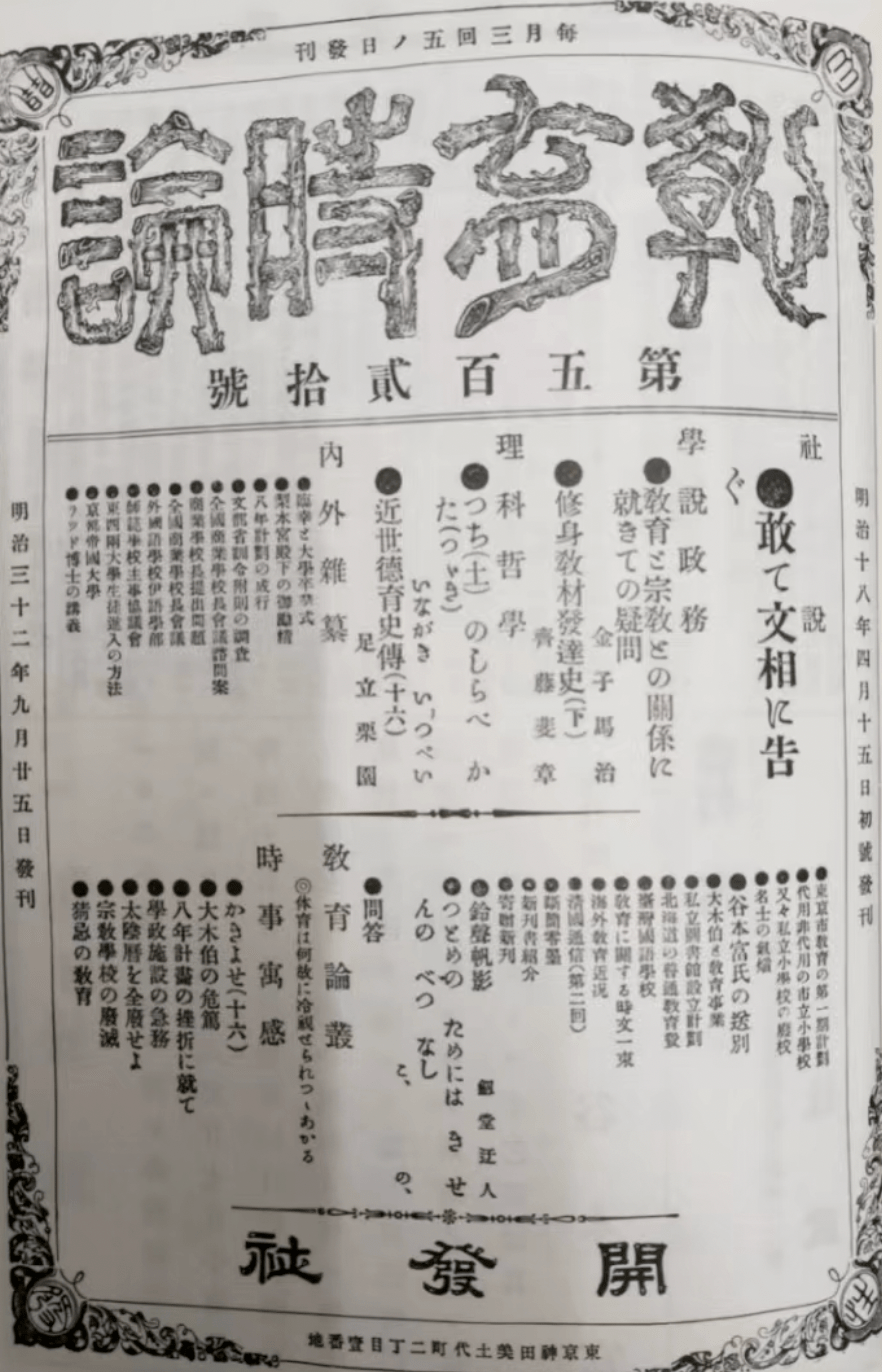 毎月三回五ノ日發刊
教育時論
第五百貳拾號
明治十八年四月十五日初號發刊
社說
●敢て文相に告
ぐ
學說政務
●教育と宗教との關係に
就きての疑問
金子馬治
●修身教材發達史(下)
齊藤斐章
理科哲學
●つち(土)のしらべ か
た(つゞき)
いながき いつぺい
●近世德育史傳(十六)
足立栗園
內外雜纂
●臨幸と大學卒業式
●梨本宮殿下の御勤精
●八年計劃の成行
●文部省訓令附則の調査
●全國商業學校長會議諮問案
●商業學校長提出問題
●全國商業學校長會議
●外國語學校伊語學部
●師範學校主事協議會
●東西兩大學生徒進入の方法
●京都帝國大學
●ラッド博士の講義
●東京市教育の第一期計劃
●代用非代用の市立小學校
●又々私立小學校の廢校
●名士の氣焰
●谷本富氏の送別
●大木伯と教育事業
●私立圖書館設立計劃
●北海道の普通教育費
●臺灣國語學校
●教育に關する時文一束
●海外教育近況
●清國通信(第二回)
●斷簡零墨
●新刊書紹介
●寄贈新刊
●鈴聲帆影
堂迂人
●つとめの ためには きせ
んの べつ なし
こ、の、
●問答
教育論叢
◎体育は何故に冷視せられつゝあかる
時事寓感
●かきよせ(十六)
●大木伯の危篤
●八年計畫の挫折に就て
●學政施設の急務
●太陰曆を全廢せよ
●宗教學校の廢滅
●猜忌の教育
明治三十二年九月廿五日發刊
開發社
東京神田美土代町二丁目壹番地